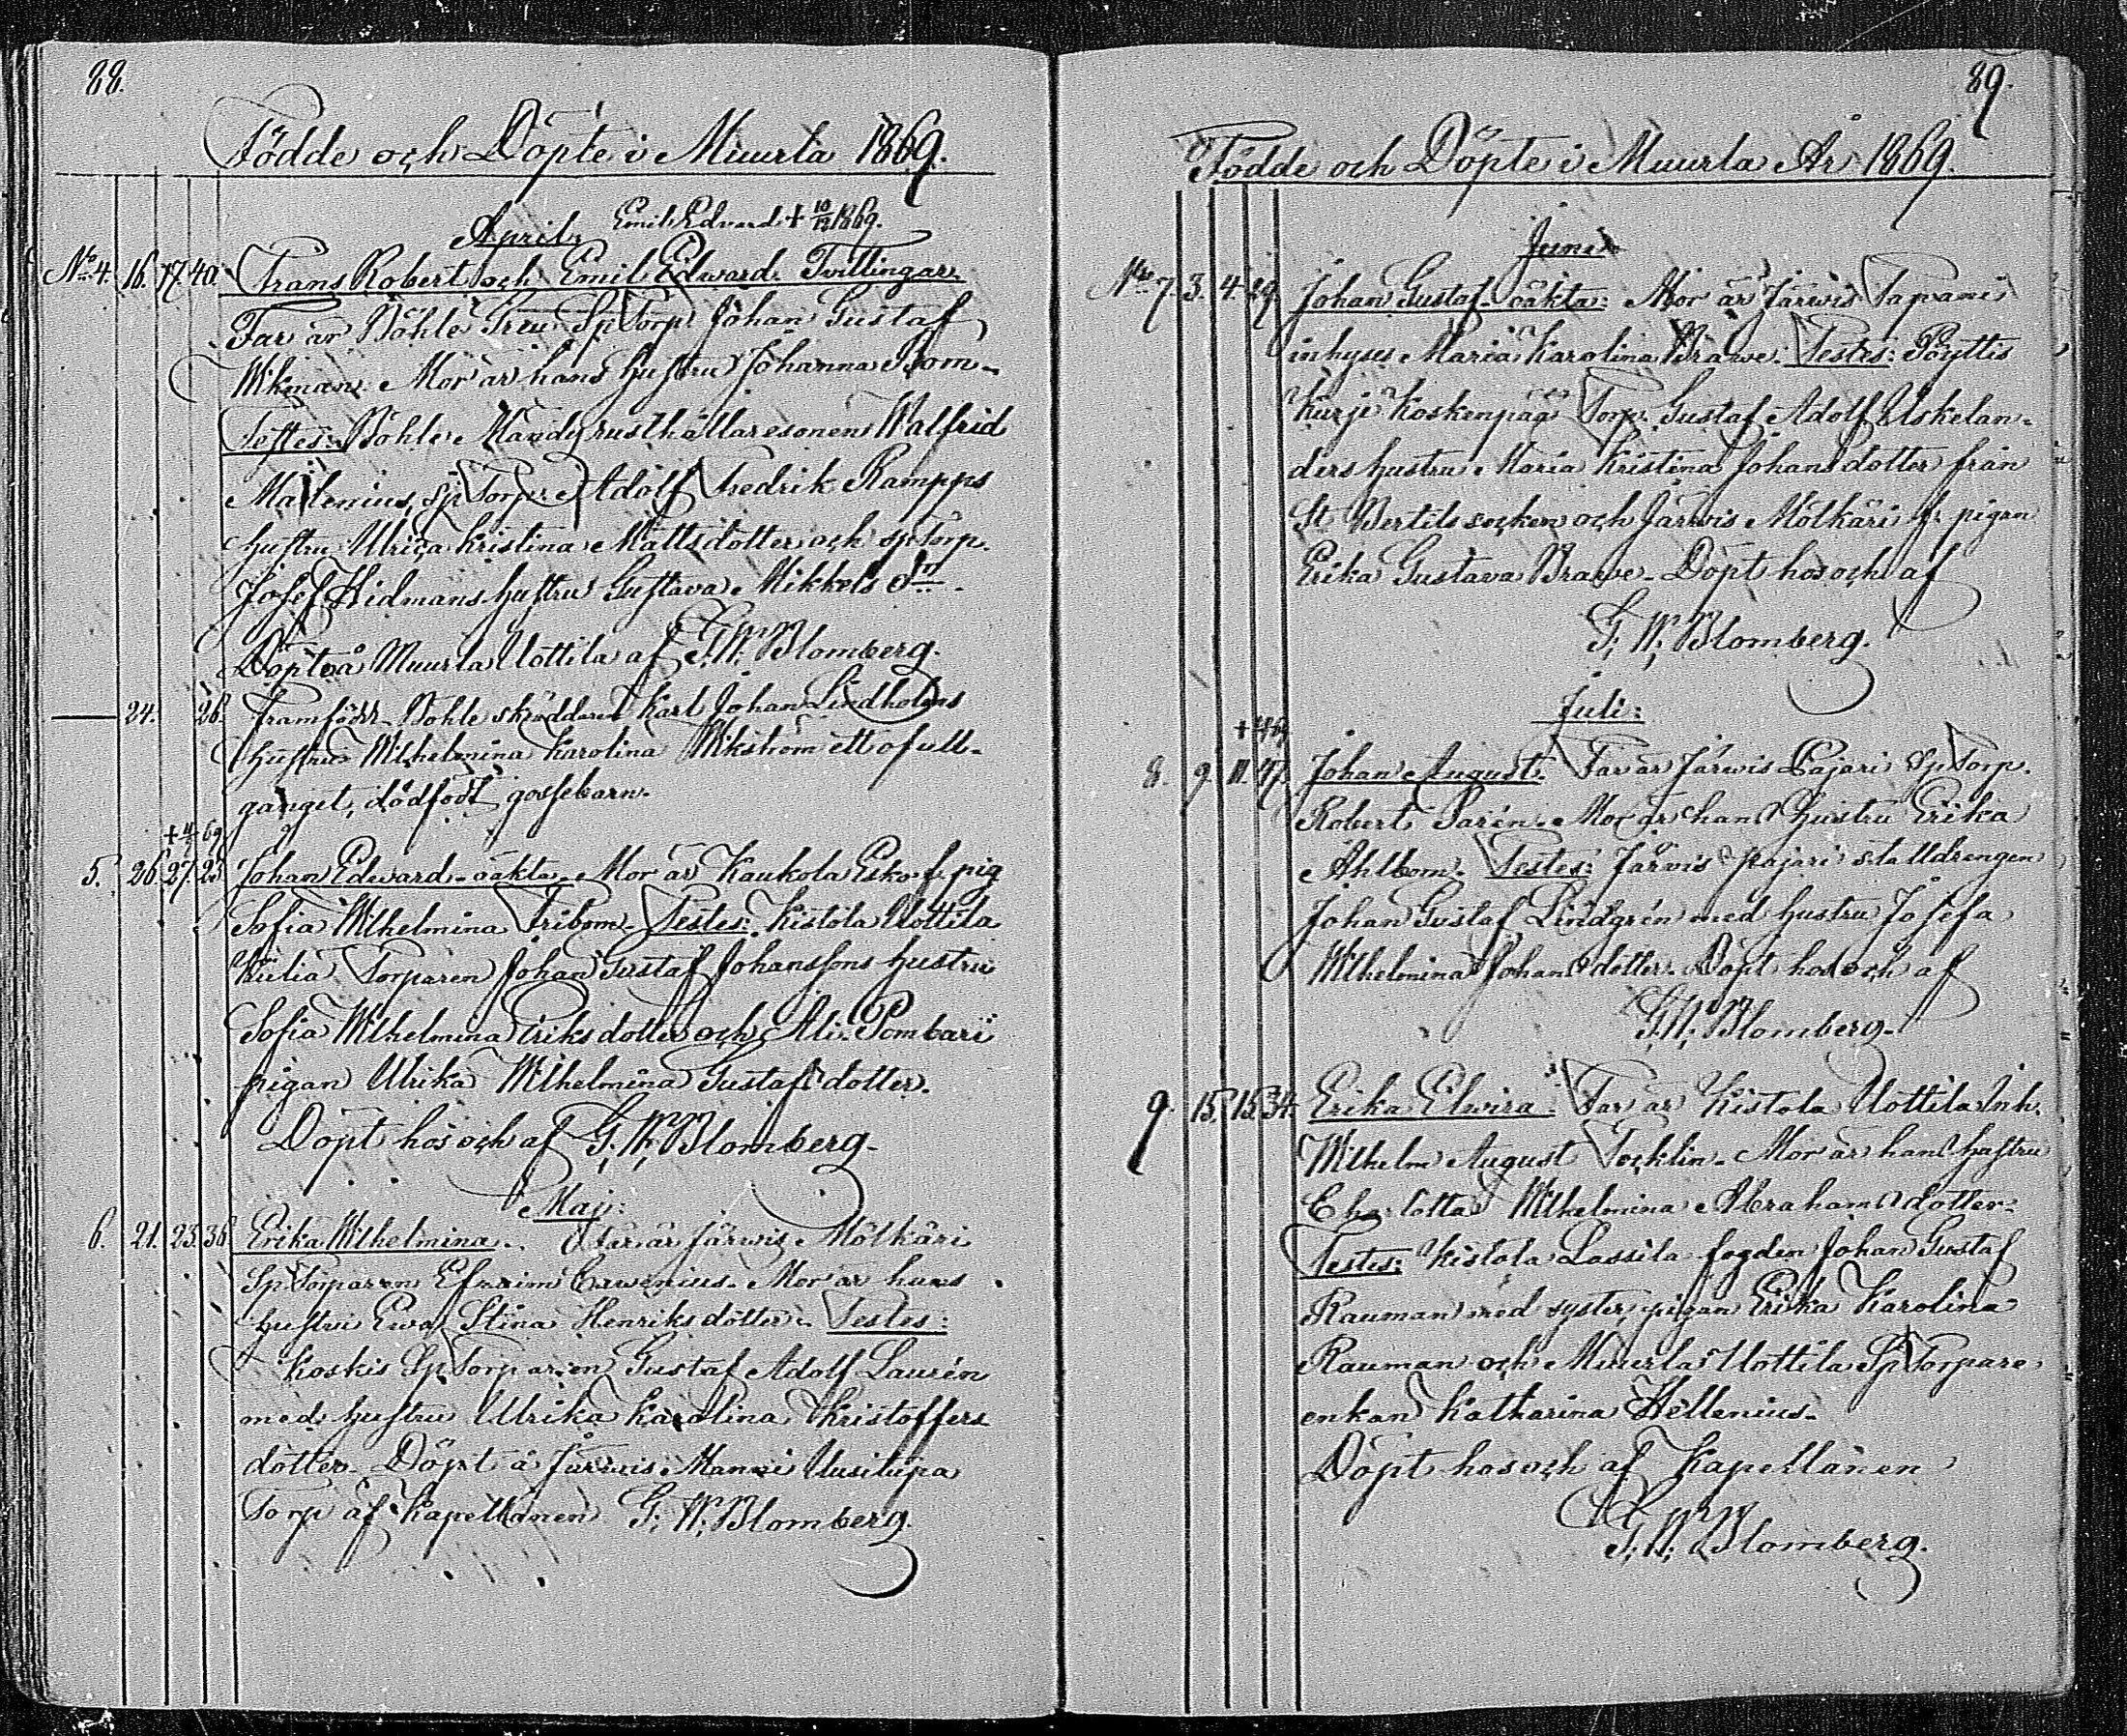 88.
Födde och Döpte i Muurla 1869.
April. Emil Edvard + 10/12 1869.
No 4. 16. 17. 40. Frans Robert och Emil Edward. Tvillingar.
Far är Böhle Greu Sp. Torp. Johan Gustaf
Wikman. Mor är hans hustru Johanna Blom-
Testes: Böhle Handy rusthållaresonen Walfrid
Malenius, sp. Torp. Adolf Fredrik Rampps
hustru Ulrica Kristina Mattsdotter och sp. Torp.
Josef Widmans hustru Gustava Mikkels dr
Döpt å Muurla Uottila af G. W. Blomberg.
— 24. 26. Framfödt Böhle skräddaren Karl Johan Lindholms
hustru Wilhelmina Karolina Wikström ett ofull-
gånget, dödfödt gossebarn.
69
5. 26. 27. 23. Johan Edward - oäkta. Mor är Kaukola Esko f. pig
Sofia Wilhelmina Fribom. Testes: Kistola Uottila
Torparen Johan Gustaf Johanssons hustru
Sofia Wilhelmina Eriksdotter och Ali-Pombari
pigan Ulrika Wilhelmina Gustafsdotter.
Döpt hos och af G. W. Blomberg.
Maj:
6. 21. 23. 36. Erika Wilhelmina. Far är Järwis Mölkäri
Sp. Torparen Efraim Cawenius. Mor är hans
hustru Ewa Stina Henriksdotter. Testes:
Koskis Sp. Torparen Gustaf Adolf Laurén
med hustru Ulrika Karolina Kristoffers
dotter. Döpt å Järwis Manni Uusitupa
Torp af Kapellanen G. W. Blomberg.
89.
Födde och Döpte i Muurla År 1869.
Juni
No 7. 3. 4. 29. Johan Gustaf - oäkta: Mor är Järwis Tapani
inhyses Maria Karolina Brawe. Testes: Pöyttis
Kurji Koskenpää Torp. Gustaf Adolf Uskelan-
ders hustru Maria Kristina Johansdotter från
St Bertils socken och Järwis Mölkäri f. pigan
Erika Gustava Brawe. Döpt hos och af
G. W. Blomberg.
Juli:
8. 9. 11. 47. Johan August. Far är Järwis Pajari Sp. Torp.
Robert Parén. Mor är hans hustru Erika
Ahlbom. Testes: Järwis Pajari stalldrengen
Johan Gustaf Lindgrén med hustru Josefa
Wilhelmina Johansdotter. Döpt hos och af
G. W. Blomberg.
9. 15. 15. 34. Erika Elwira. Far är Kistola Uottila Inh.
Wilhelm August Tocklin. Mor är hans hustru
Charlotta Wilhelmina Abrahamsdotter.
Testes: Kistola Lassila fogden Johan Gustaf
Rauman med syster, pigan Erika Karolina
Rauman och Muurla Uottila Sp. Torpare
enkan Katharina Hellenius.
Döpt hos och af Kapellanen
G. W. Blomberg.